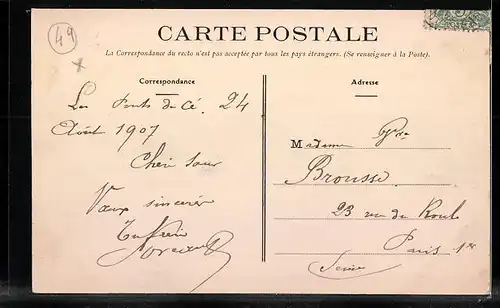 49
x
CARTE POSTALE
La Correspondance du recto n'est pas acceptée par tous les pays étrangers. (Se renseigner à la Poste).
Correspondance
Les Ponts de Cé. 24
Août 1907
Cher Sœur
Vœux sincères
Ton frère
Adresse
Madame Vve
Brousse
23 rue du Roule
Paris 1er
Seine